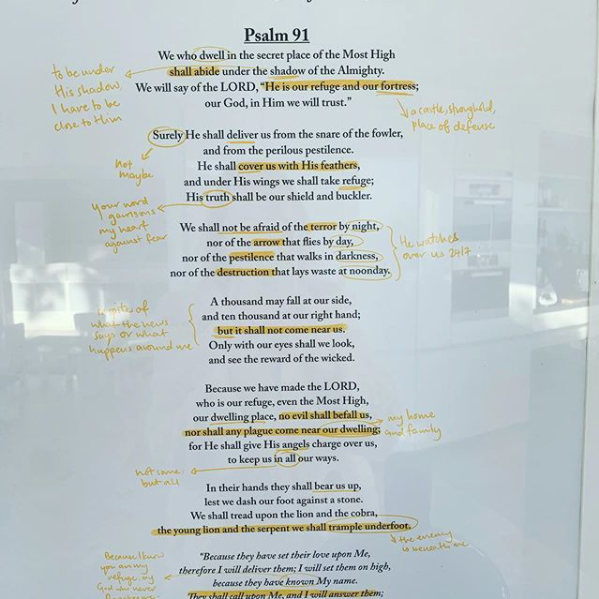 Psalm 91
We who dwell in the secret place of the Most High
shall abide under the shadow of the Almighty.
We will say of the LORD, “He is our refuge and our fortress;
our God, in Him we will trust.”
to be under
His shadow,
I have to be
close to Him
a castle, stronghold,
place of defense
Surely He shall deliver us from the snare of the fowler,
and from the perilous pestilence.
He shall cover us with His feathers,
and under His wings we shall take refuge;
His truth shall be our shield and buckler.
not
maybe
Your word
garrisons
my heart
against fear
We shall not be afraid of the terror by night,
nor of the arrow that flies by day,
nor of the pestilence that walks in darkness,
nor of the destruction that lays waste at noonday.
He watches
over us 24/7
A thousand may fall at our side,
and ten thousand at our right hand;
but it shall not come near us.
Only with our eyes shall we look,
and see the reward of the wicked.
of
what the news
says or what
happens around me
Because we have made the LORD,
who is our refuge, even the Most High,
our dwelling place, no evil shall befall us,
nor shall any plague come near our dwelling;
for He shall give His angels charge over us,
to keep us in all our ways.
my home
and family
not some
but all
In their hands they shall bear us up,
lest we dash our foot against a stone.
We shall tread upon the lion and the cobra,
the young lion and the serpent we shall trample underfoot.
the enemy
is beneath me
“Because they have set their love upon Me,
therefore I will deliver them; I will set them on high,
because they have known My name.
They shall call upon Me, and I will answer them;
Because I know
you are my
refuge, my
God who never